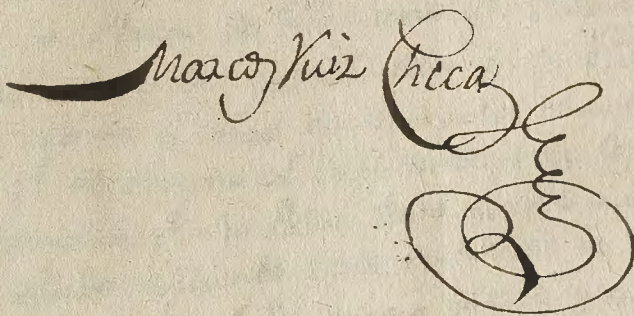 Marcos Ruiz Checa